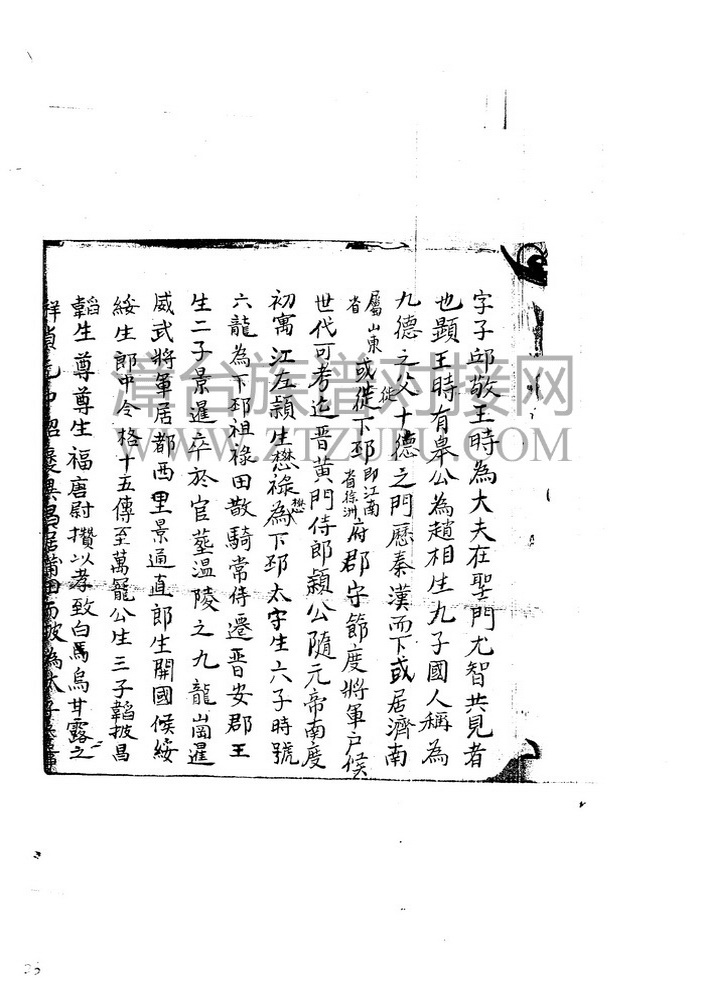 字子邱敬王時為大夫在聖門尤智共見者
也顯王時有皋公為趙相生九子國人稱為
九德之父十德之門歷秦漢而下或居濟南
屬山東省或徙徙下邳即江南省徐洲府郡守節度將軍戶侯
世代可考迄晉黃門侍郎穎公隨元帝南度
初寓江左穎生懋祿懋為下邳太守生六子時號
六龍為下邳祖祿田散騎常侍遷晉安郡王
生二子景暹卒於官塟温陵之九龍崗暹
威武將軍居都西里景通直郎生開國侯綏
綏生郎中令格十五傳至萬寵公生三子韜披昌
韜生尊尊生福唐尉攢以孝致白馬烏甘露之
祥貞元中昌居莆田而披為太子
漳台族譜对接网
WWW.ZTZUPU.COM
26